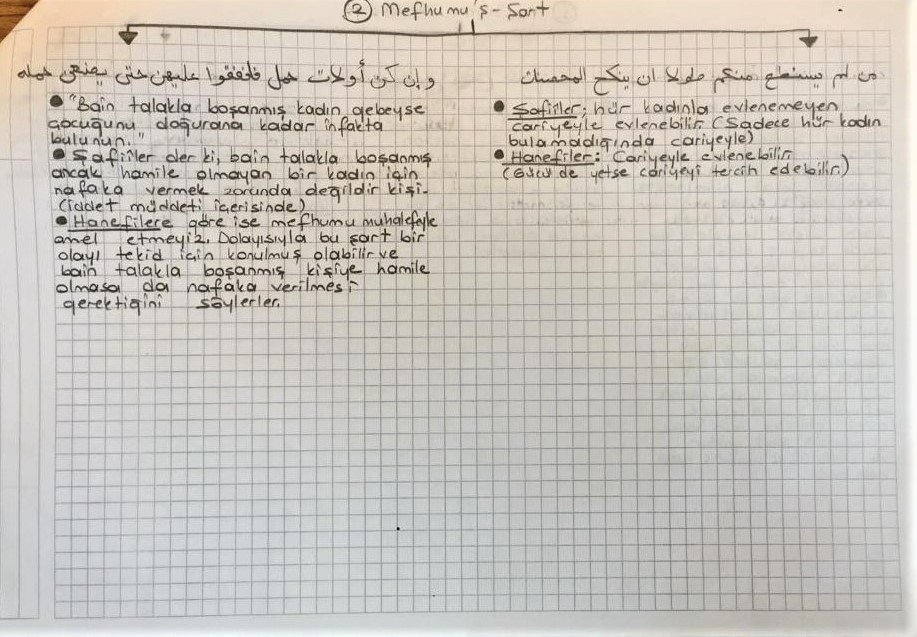 ② Mefhumu'ş-Şart
وإن كن أولات حمل فانفقوا عليهن حتى يضعن حمله
● "Bain talakla boşanmış kadın gebeyse
çocuğunu doğurana kadar infakta
bulunun."
● Şafiiler der ki, bain talakla boşanmış
ancak hamile olmayan bir kadın için
nafaka vermek zorunda değildir kişi.
(iddet müddeti içerisinde)
● Hanefilere göre ise mefhumu muhalefeyle
amel etmeyiz. Dolayısıyla bu şart bir
olayı tekid için konulmuş olabilir ve
bain talakla boşanmış kişiye hamile
olmasa da nafaka verilmesi
gerektiğini söylerler.
من لم يستطع منكم طولا ان ينكح المحصنات
● Şafiiler; hür kadınla evlenemeyen
cariyeyle evlenebilir (Sadece hür kadın
bulamadığında cariyeyle)
● Hanefiler: Cariyeyle evlenebilir
(Gücü de yetse cariyeyi tercih edebilir.)